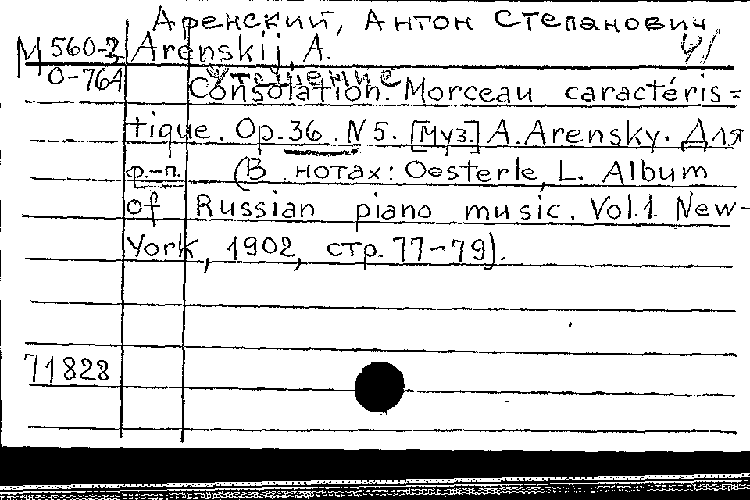 Аренский, Антон Степанович
М 560-2 Arenskij, A. 41
О-764 Утешение
Consolation. Morceau caractéris=
tique. Op. 36. N 5. [Муз.] A. Arensky. Для
ф.-п. (В нотах: Oesterle, L. Album
of Russian piano music. Vol. 1. New-
York, 1902, стр. 77-79).
71828